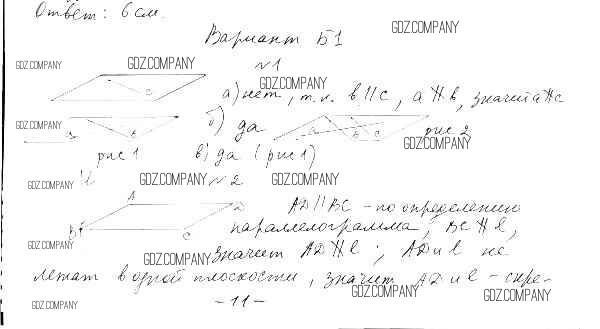 Ответ: 6 см.
GDZ.COMPANY
Вариант Б1
GDZ.COMPANY GDZ.COMPANY №1
GDZ.COMPANY
а) нет, т.к. b∥c, a∦b, значит a∦c
c
GDZ.COMPANY
б) да
a b a b c рис 2
GDZ.COMPANY
рис 1 в) да (рис 1)
GDZ.COMPANY GDZ.COMPANY №2 GDZ.COMPANY
A D AD∥BC - по определению
B C параллелограмма, BC∦l,
GDZ.COMPANY GDZ.COMPANY значит AD∦l; AD и l не
лежат в одной плоскости, значит AD и l - скре-
GDZ.COMPANY GDZ.COMPANY
GDZ.COMPANY -11-